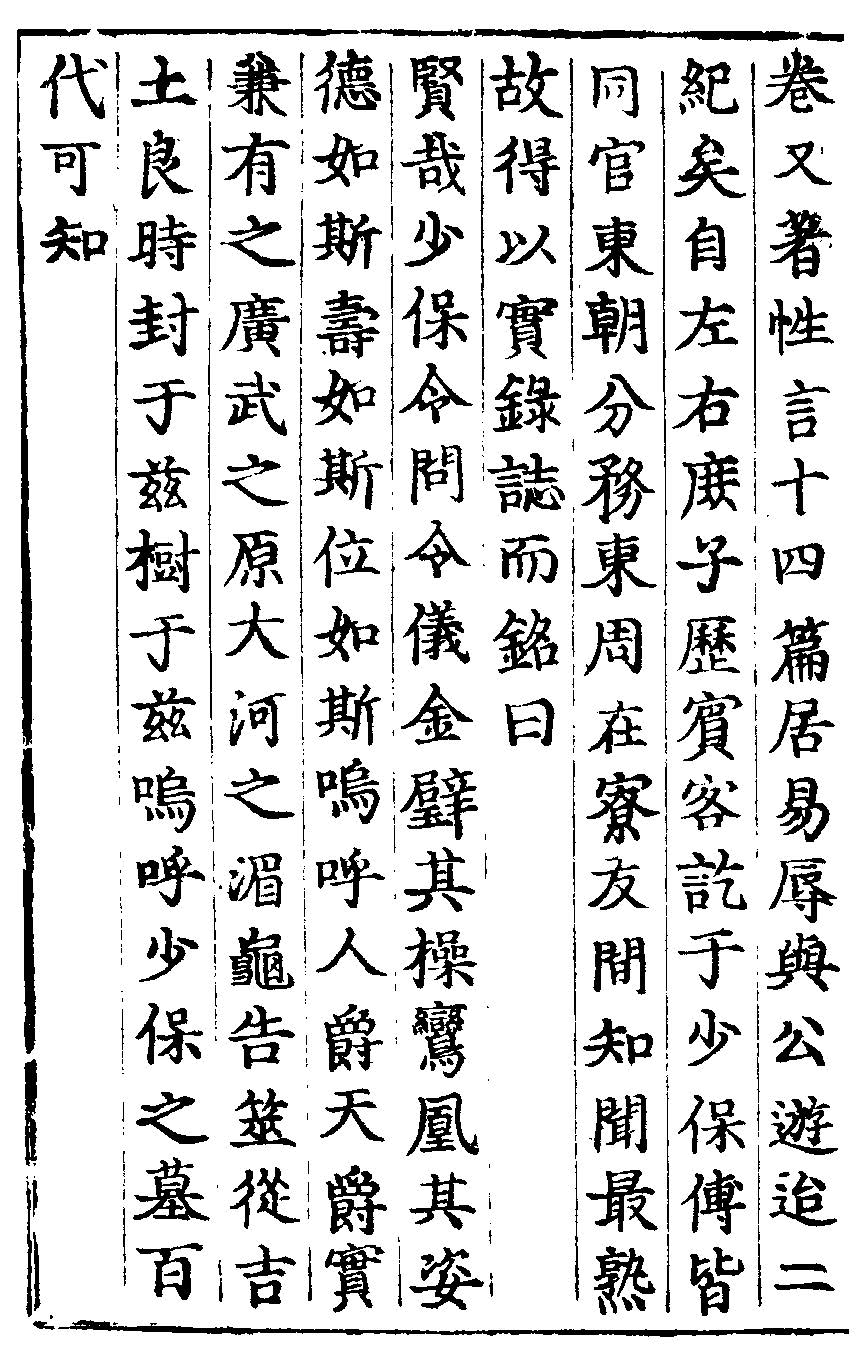 卷又著性言十四篇居易辱與公遊迨二
紀矣自左右庻子歷賓客訖于少保傅皆
同官東朝分務東周在寮友間知聞最熟
故得以實錄誌而銘曰
賢哉少保令問令儀金璧其操鸞凰其姿
德如斯壽如斯位如斯嗚呼人爵天爵實
兼有之廣武之原大河之湄龜告筮從吉
土良時封于兹樹于兹嗚呼少保之墓百
代可知